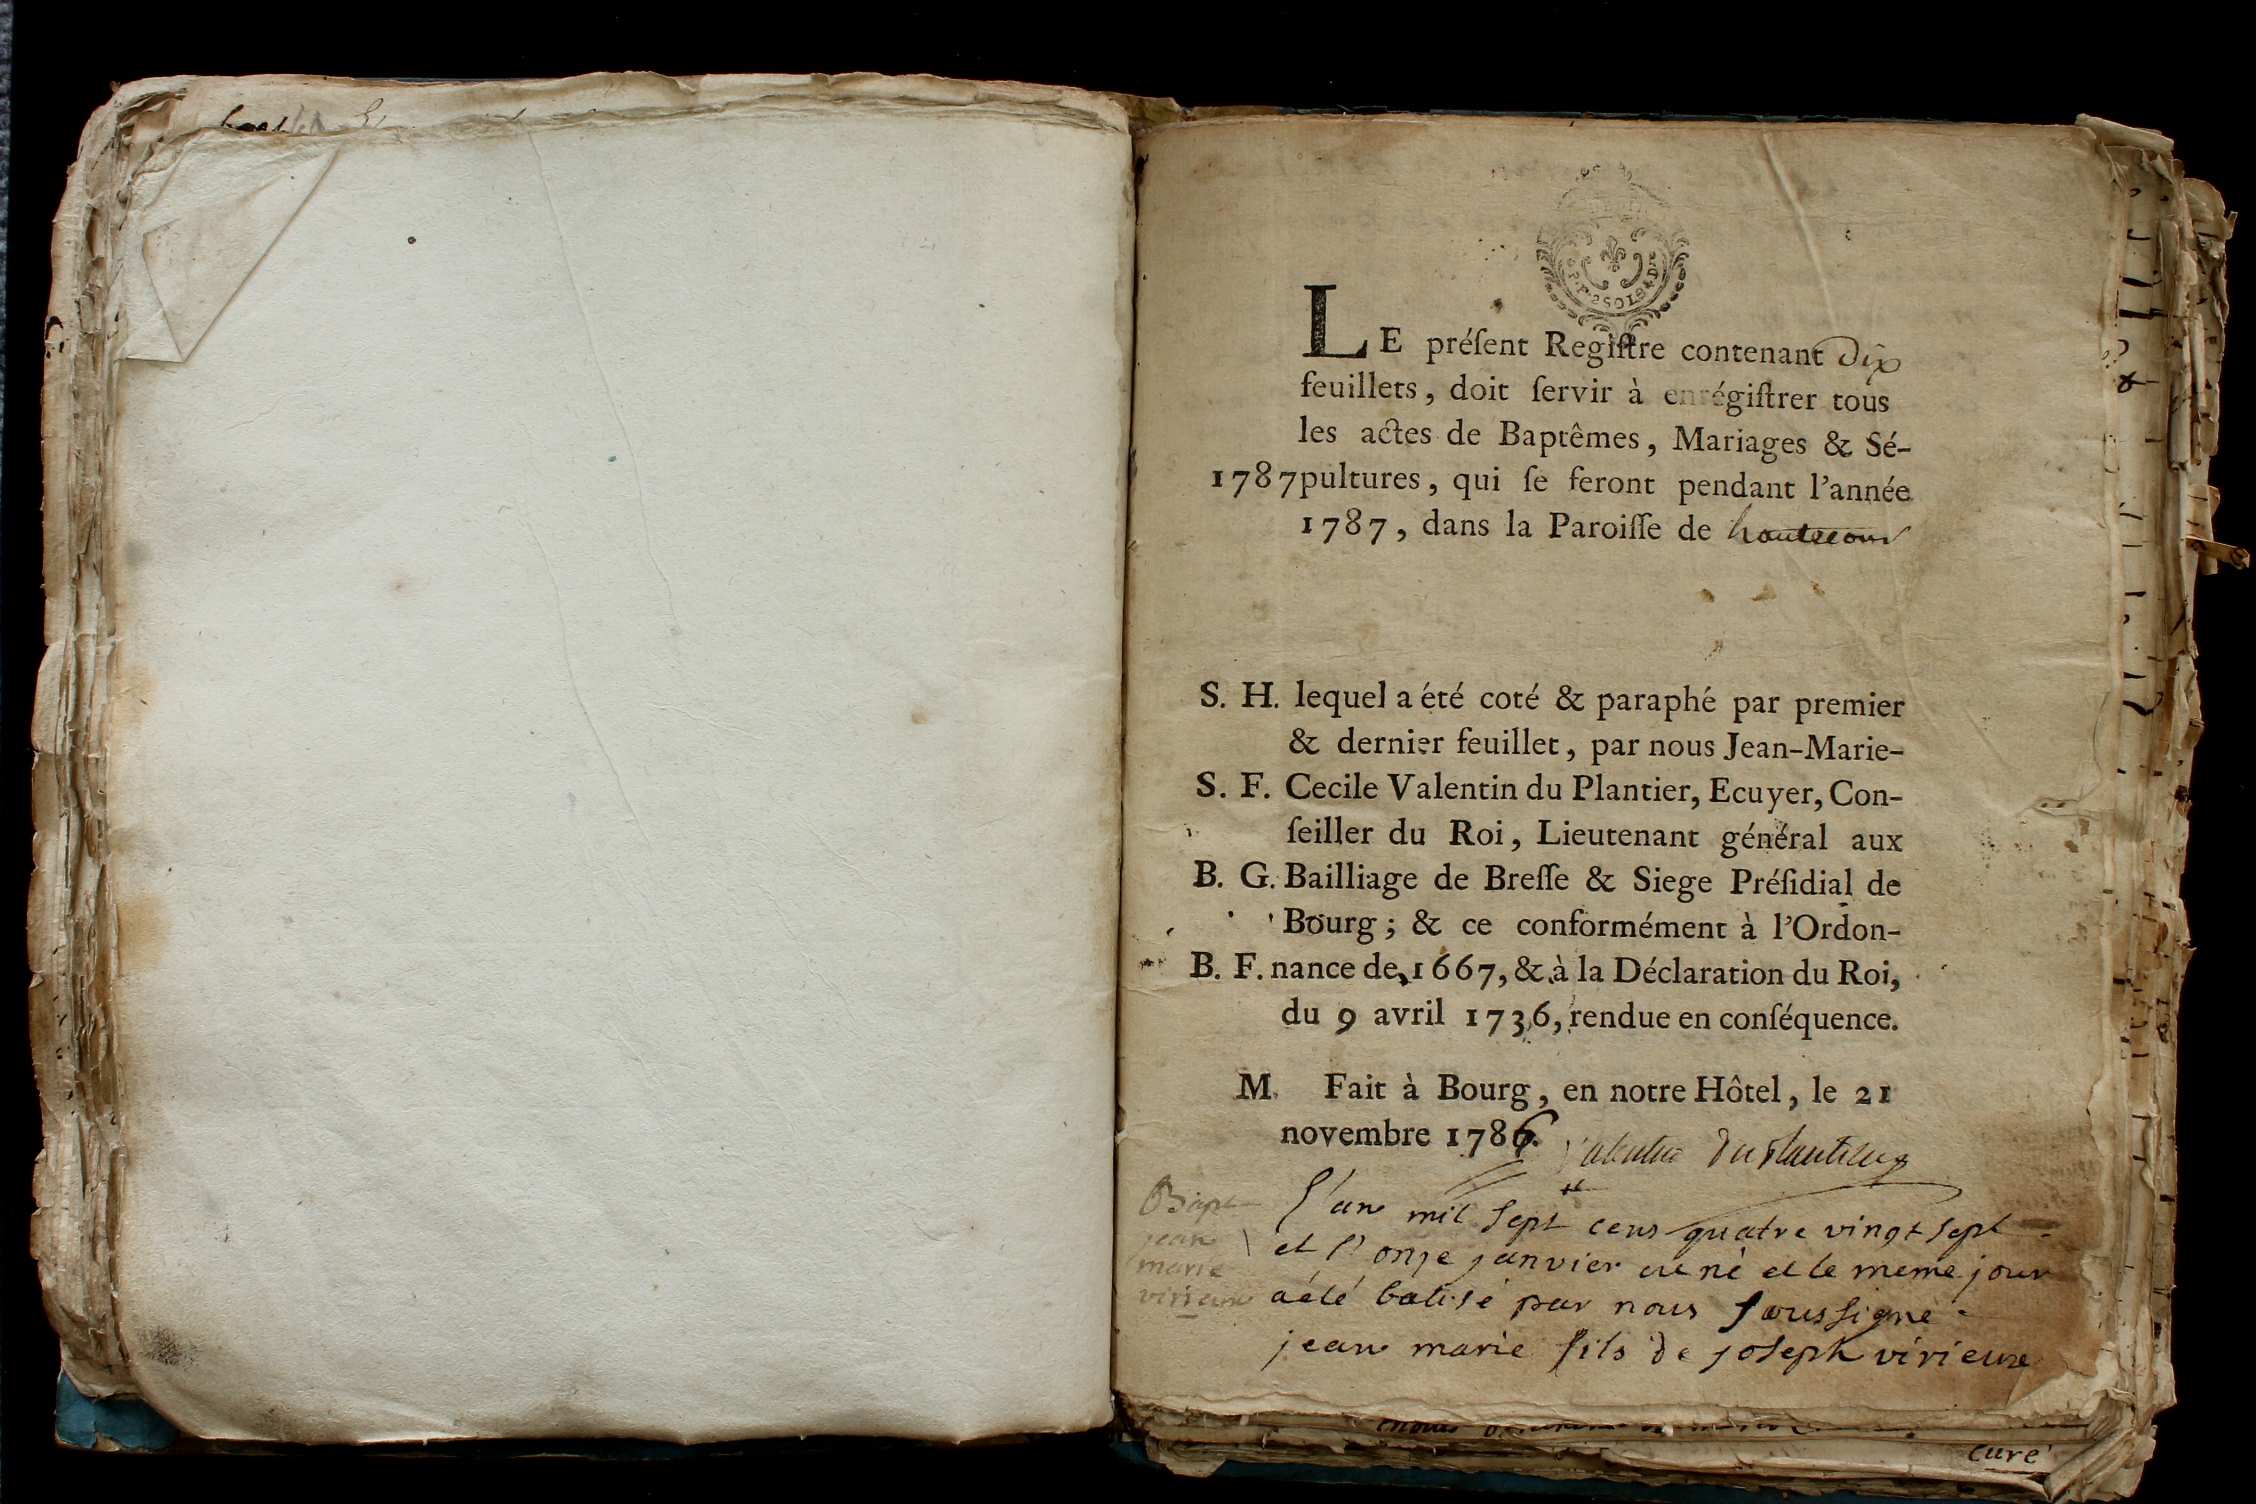 LE préſent Regiſtre contenant dix
feuillets, doit ſervir à enrégiſtrer tous
les actes de Baptêmes, Mariages & Sé-
1787 pultures, qui ſe feront pendant l'année
1787, dans la Paroiſſe de hautecour
S. H. lequel a été coté & paraphé par premier
& dernier feuillet, par nous Jean-Marie-
S. F. Cecile Valentin du Plantier, Ecuyer, Con-
ſeiller du Roi, Lieutenant général aux
B. G. Bailliage de Breſſe & Siege Préſidial de
Bourg; & ce conformément à l'Ordon-
B. F. nance de 1667, & à la Déclaration du Roi,
du 9 avril 1736, rendue en conſéquence.
M. Fait à Bourg, en notre Hôtel, le 21
novembre 1786.
Valentin duplantier
Bapt
jean
marie
virieux
l'an mil sept cens quatre vingt sept
et l'onze janvier est né et le meme jour
a été batisé par nous soussigné
jean marie fils de joseph virieux
curé